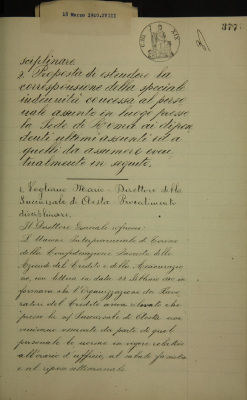 18 Marzo 1940.XVIII
377.
sciplinare.
2. Proposta di estendere la
corresponsione della speciale
indennità concessa al perso
nale assunto in luogo presso
la Sede di Roma ai dipen
denti ultimi assunti ed a
quelli da assumere even
tualmente in seguito.
1. Vogliano Mario - Direttore della
Succursale di Aosta. Provvedimento
disciplinare.
Il Direttore Generale riferisce:
L'Unione Interprovinciale di Torino
della Confederazione Fascista delle
Aziende del Credito e della Assicurazio
ne, con lettera in data 28 Febbraio
formava che l'Organizzazione dei Lavo
ratori del Credito aveva rilevato che
presso la ns/ Succursale di Aosta non
venivano osservate da parte di quel
personale le norme in vigore relative
all'orario d'ufficio, al sabato fascista
e al riposo settimanale.